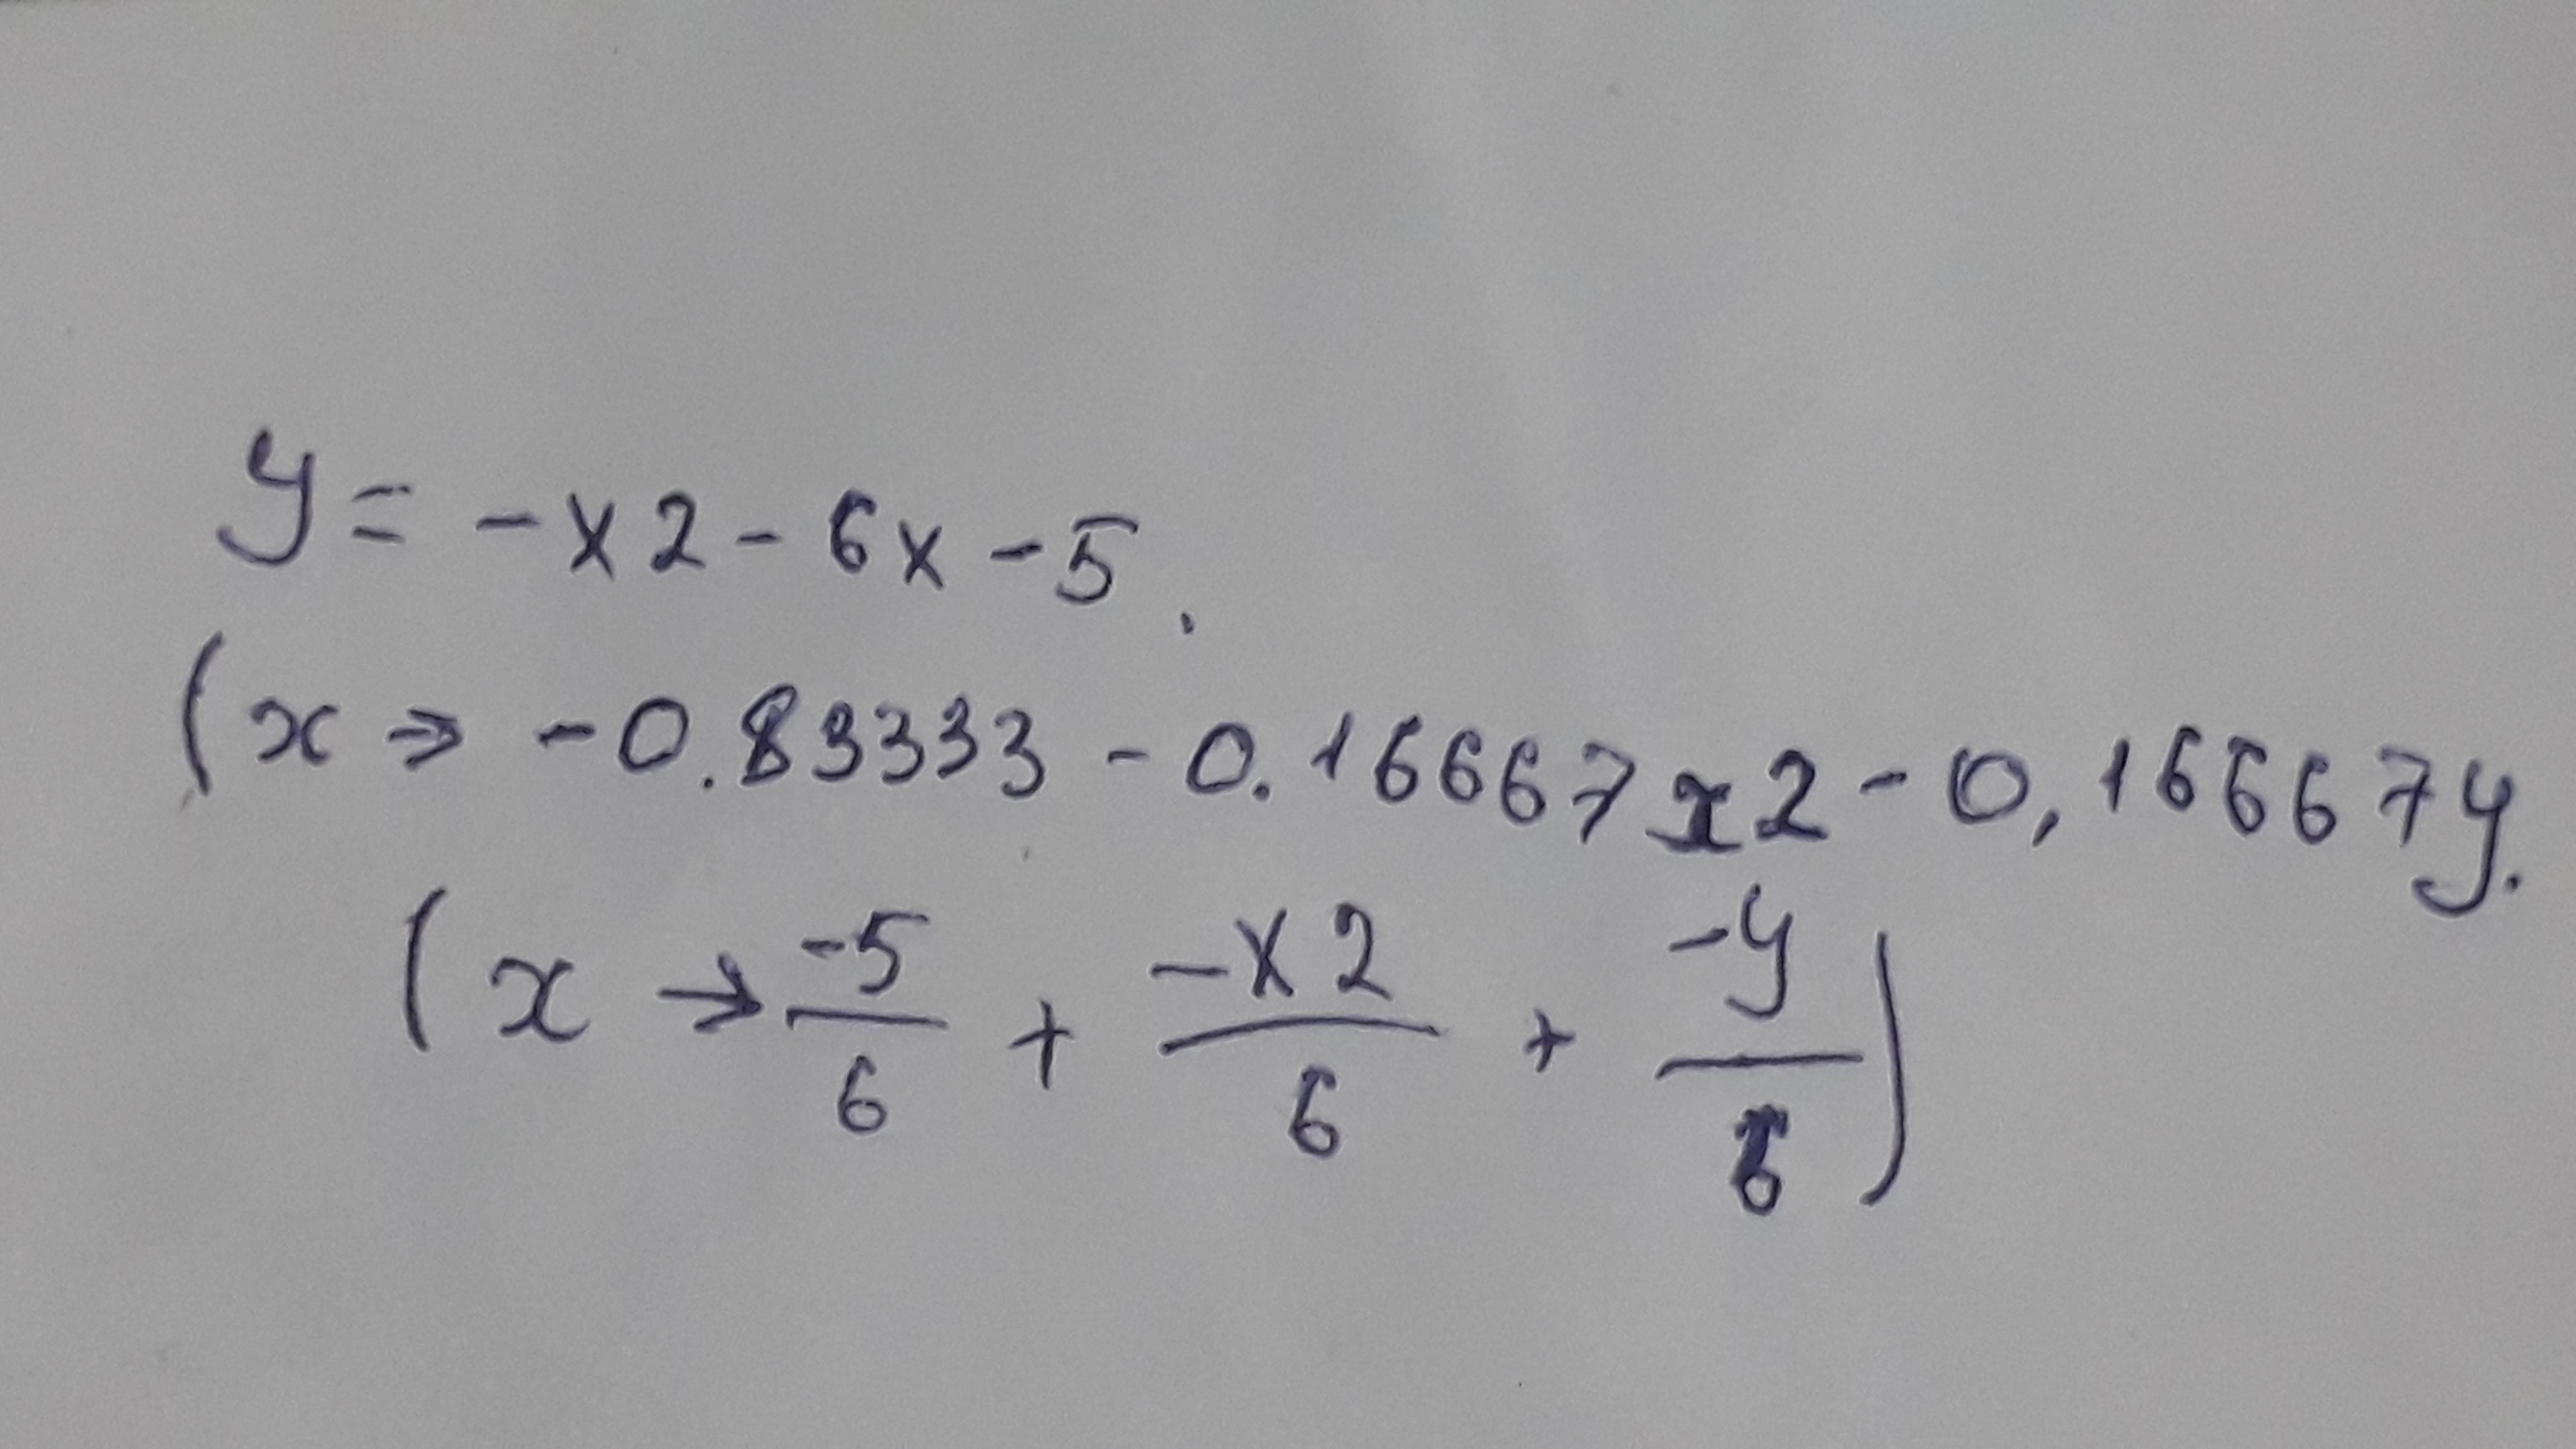 y = -x2 - 6x - 5.
(x → -0.83333 - 0.16667x2 - 0,16667y.
(x → -5/6 + -x2/6 + -y/6)